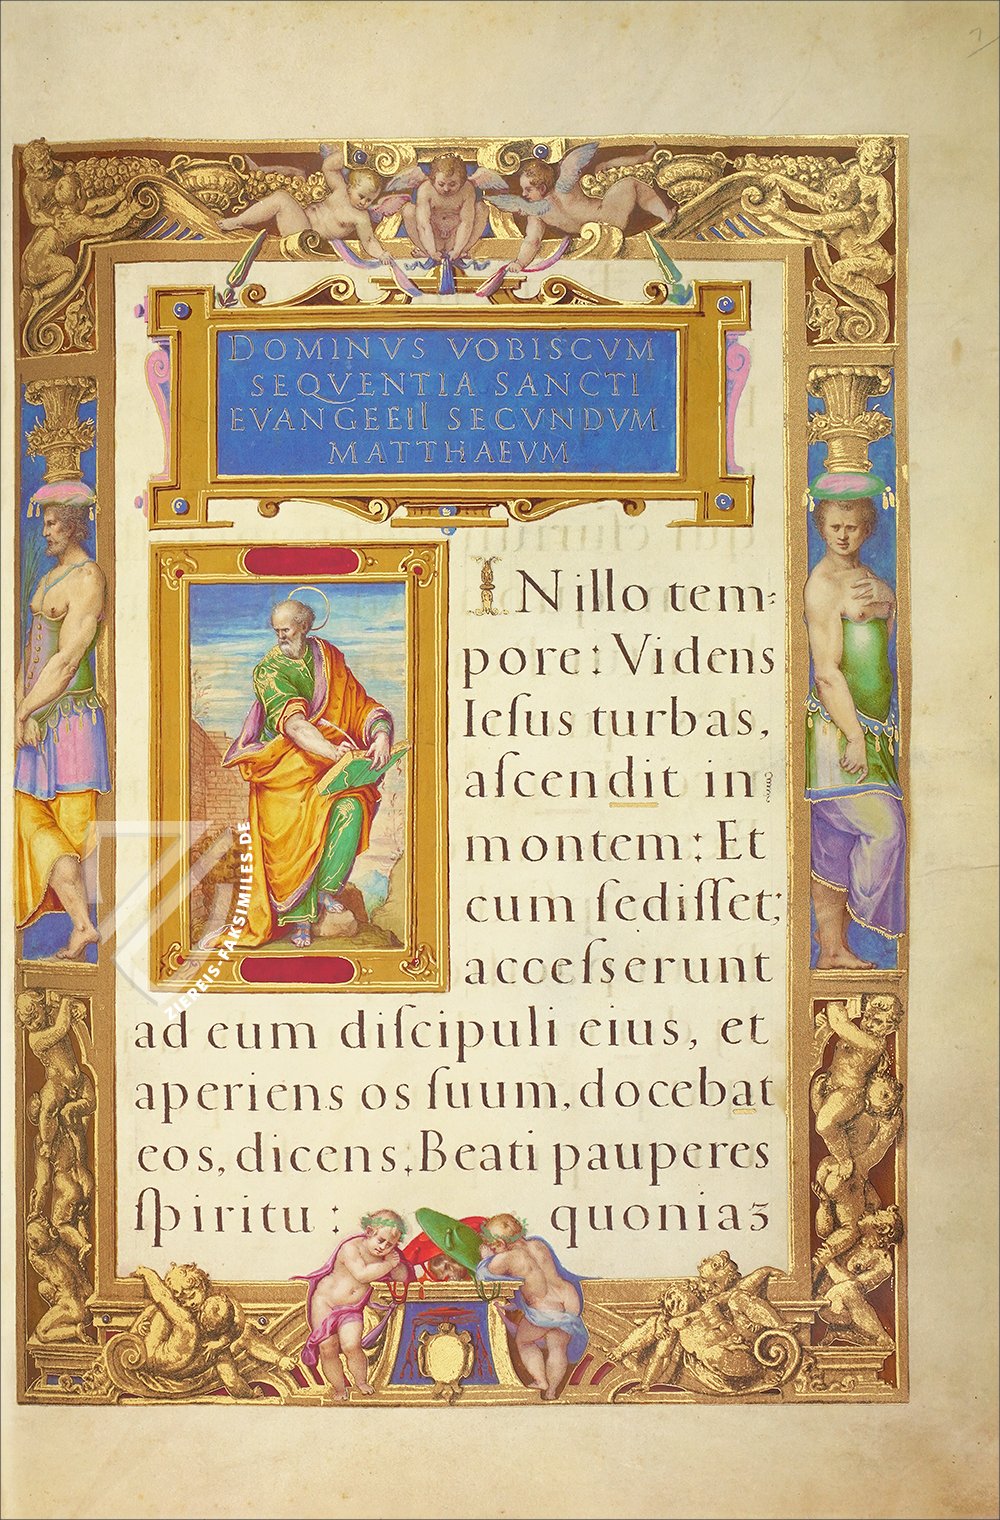 DOMINVS VOBISCVM
SEQVENTIA SANCTI
EVANGEEII SECVNDVM
MATTHAEVM
INillo tem:
pore: Videns
Ieſus turbas,
aſcendit in
montem: Et
cum ſediſſet;
acceſserunt
ad eum diſcipuli eius, et
aperiens os ſuum, docebat
eos, dicens. Beati pauperes
ſpiritu: quoniaʒ
ZIEREIS-FAKSIMILES.DE